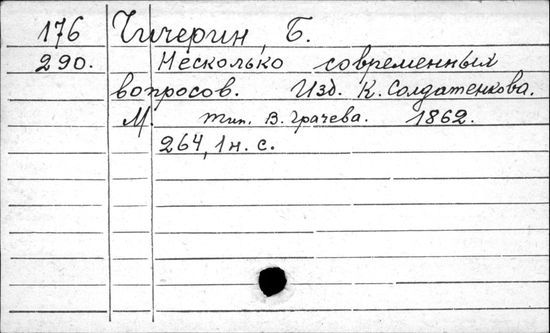 176 Чичерин, Б.
290. Несколько современных
вопросов. Изд. К. Солдатенкова.
М. тип. В. Грачева. 1862.
264, 1 н. с.